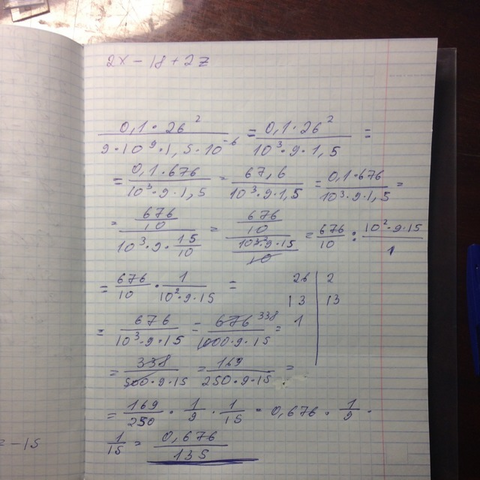 2x - 18 + 2z
\frac{0,1 \cdot 26^2}{9 \cdot 10^9 \cdot 1,5 \cdot 10^{-6}} = \frac{0,1 \cdot 26^2}{10^3 \cdot 9 \cdot 1,5} =
= \frac{0,1 \cdot 676}{10^3 \cdot 9 \cdot 1,5} = \frac{67,6}{10^3 \cdot 9 \cdot 1,5} = \frac{0,1 \cdot 676}{10^3 \cdot 9 \cdot 1,5} =
= \frac{\frac{676}{10}}{10^3 \cdot 9 \cdot \frac{15}{10}} = \frac{\frac{676}{10}}{\frac{10^3 \cdot 9 \cdot 15}{10}} = \frac{676}{10} : \frac{10^2 \cdot 9 \cdot 15}{1}
= \frac{676}{10} \cdot \frac{1}{10^2 \cdot 9 \cdot 15} =
26 | 2
13 | 13
1
= \frac{676}{10^3 \cdot 9 \cdot 15} = \frac{676^{338}}{1000 \cdot 9 \cdot 15} =
= \frac{338}{500 \cdot 9 \cdot 15} = \frac{169}{250 \cdot 9 \cdot 15} =
= \frac{169}{250} \cdot \frac{1}{9} \cdot \frac{1}{15} = 0,676 \cdot \frac{1}{9} \cdot
\frac{1}{15} = \frac{0,676}{135}
= -15